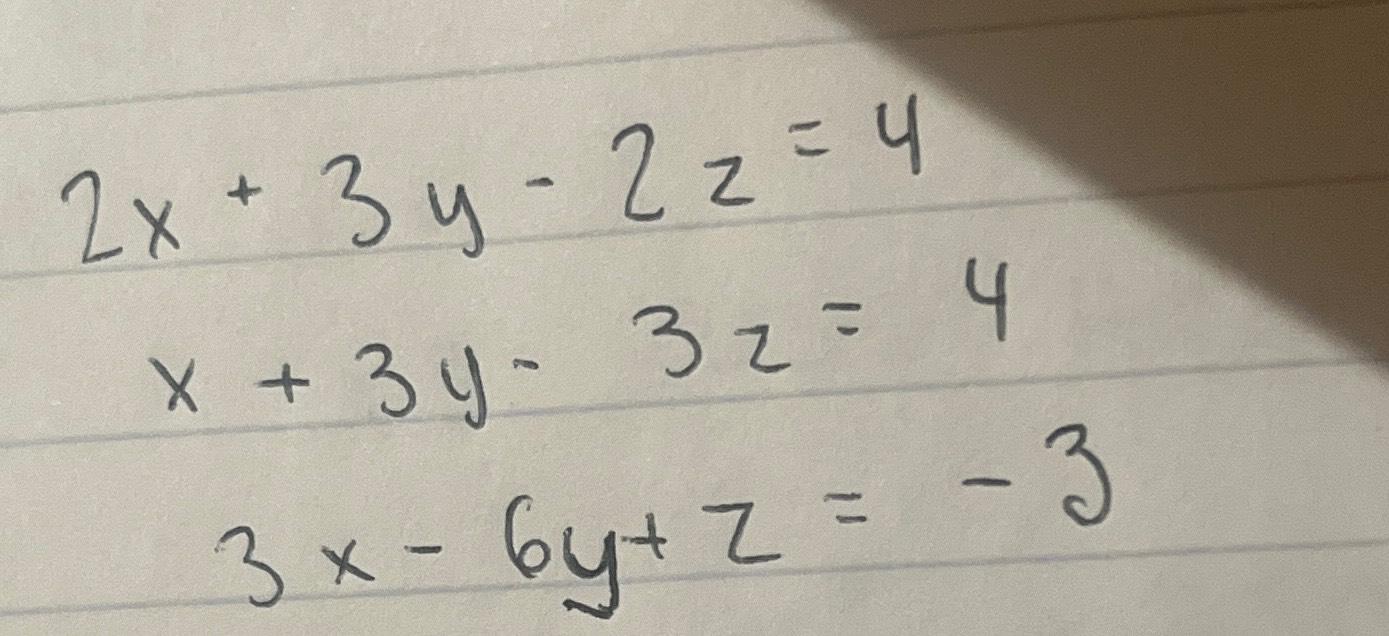 2x + 3y - 2z = 4
x + 3y - 3z = 4
3x - 6y + z = -3